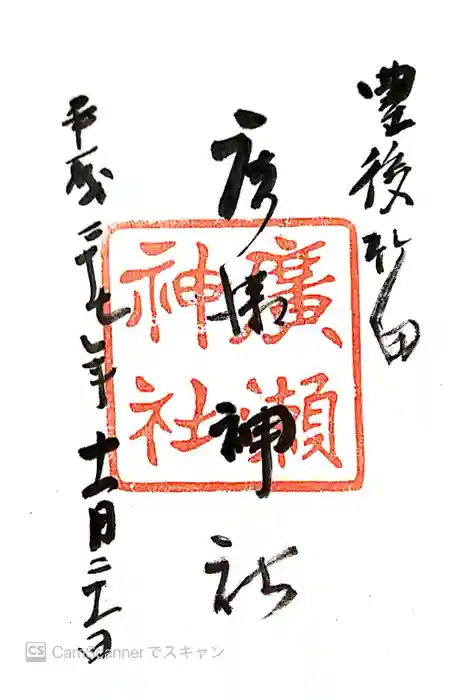 豊後竹田
広瀬神社
廣瀬
神社
平成二十七年十一月二十一日
CS CamScannerでスキャン